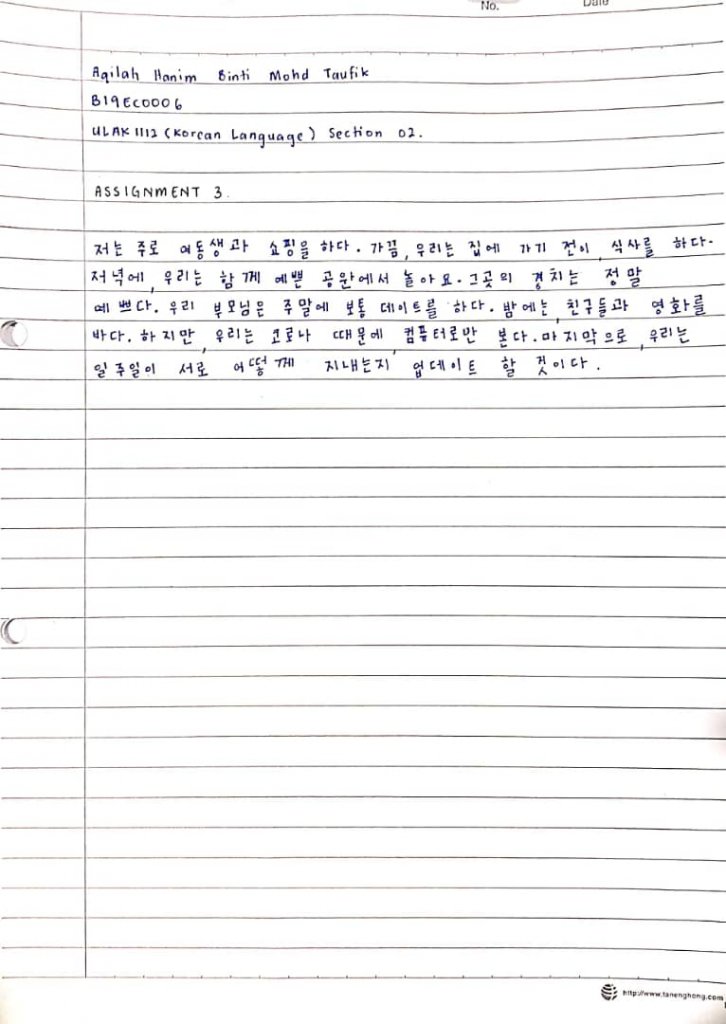 No.
Date
Aqilah Hanim Binti Mohd Taufik
B19EC0006
ULAK 1112 (Korean Language) Section 02.
ASSIGNMENT 3.
저는 주로 여동생과 쇼핑을 하다. 가끔, 우리는 집에 가기 전이, 식사를 하다.
저녁에, 우리는 함께 예쁜 공원에서 놀아요. 그곳의 경치는 정말
예쁘다. 우리 부모님은 주말에 보통 데이트를 하다. 밤에는, 친구들과 영화를
바다. 하지만, 우리는 코로나 때문에, 컴퓨터로만 본다. 마지막으로, 우리는
일주일이 서로 어떻게 지내는지 업데이트 할 것이다.
http://www.tanenghong.com